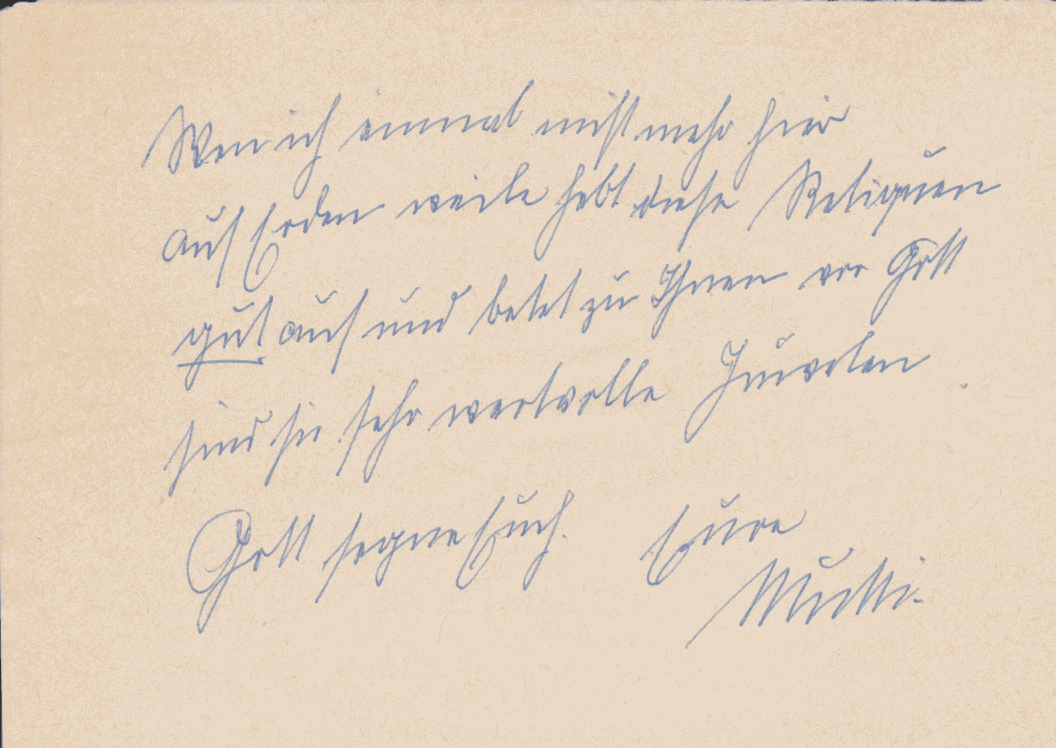 Wen ich einmal nicht mehr hier
auf Erden weile hebt diese Reliquien
gut auf und betet zu Ihnen vor Gott
sind sie sehr wertvolle Juwelen
Gott segne Euch. Eure
Mutti.